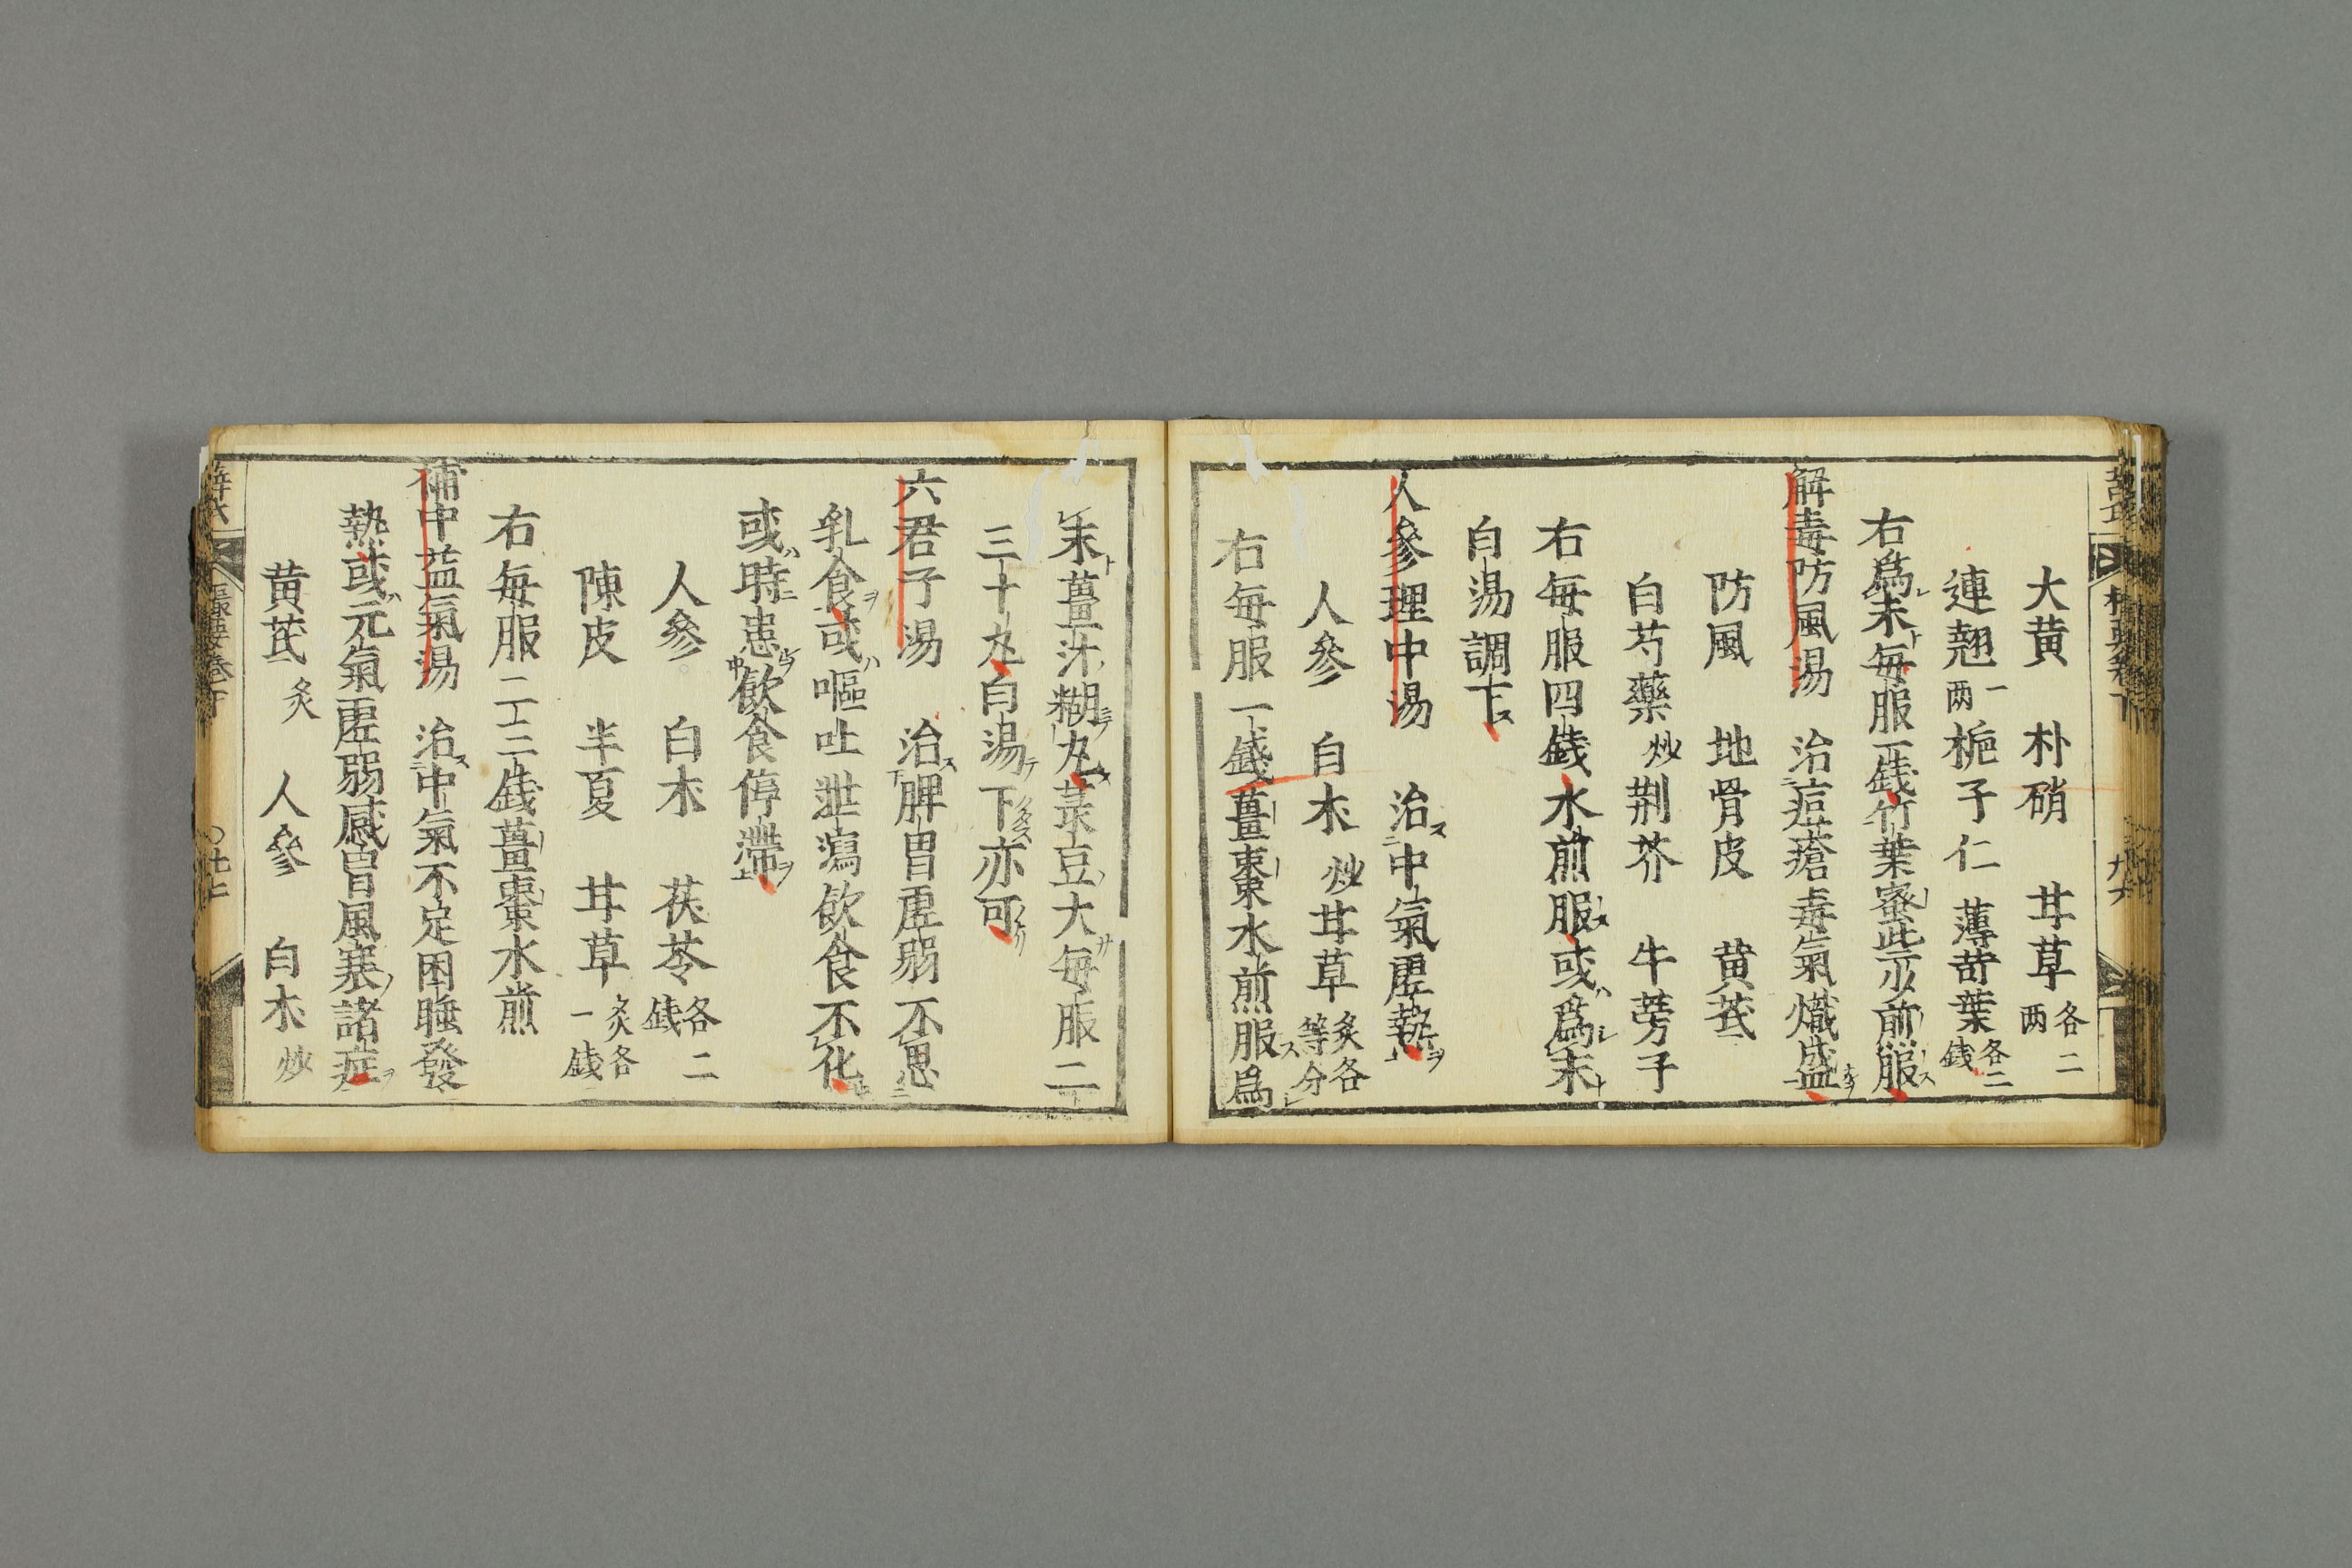 大黄　朴硝　甘草各二两
連翹一两梔子仁　薄苛葉各二錢
右爲末毎服一錢竹葉蜜些水煎服
解毒防風湯　治痘瘡毒氣熾盛
防風　地骨皮　黄茋
白芍藥炒荆芥　牛蒡子
右毎服四錢水煎服或爲末
白湯調下
人參理中湯　治中氣虚熱
人參　白朮炒甘草炙各等分
右毎服一錢薑棗水煎服爲
末薑汁糊丸菉豆大毎服二
三十丸白湯下亦可
六君子湯　治脾胃虚弱不思
乳食或嘔吐泄瀉飲食不化
或時患飲食停滯
人參　白朮　茯苓各二錢
陳皮　半夏　甘草炙各一錢
右毎服二三錢薑棗水煎
補中益氣湯　治中氣不足困睡發
熱或元氣虚弱感冒風寒諸症
黄茋炙　人參　白朮炒